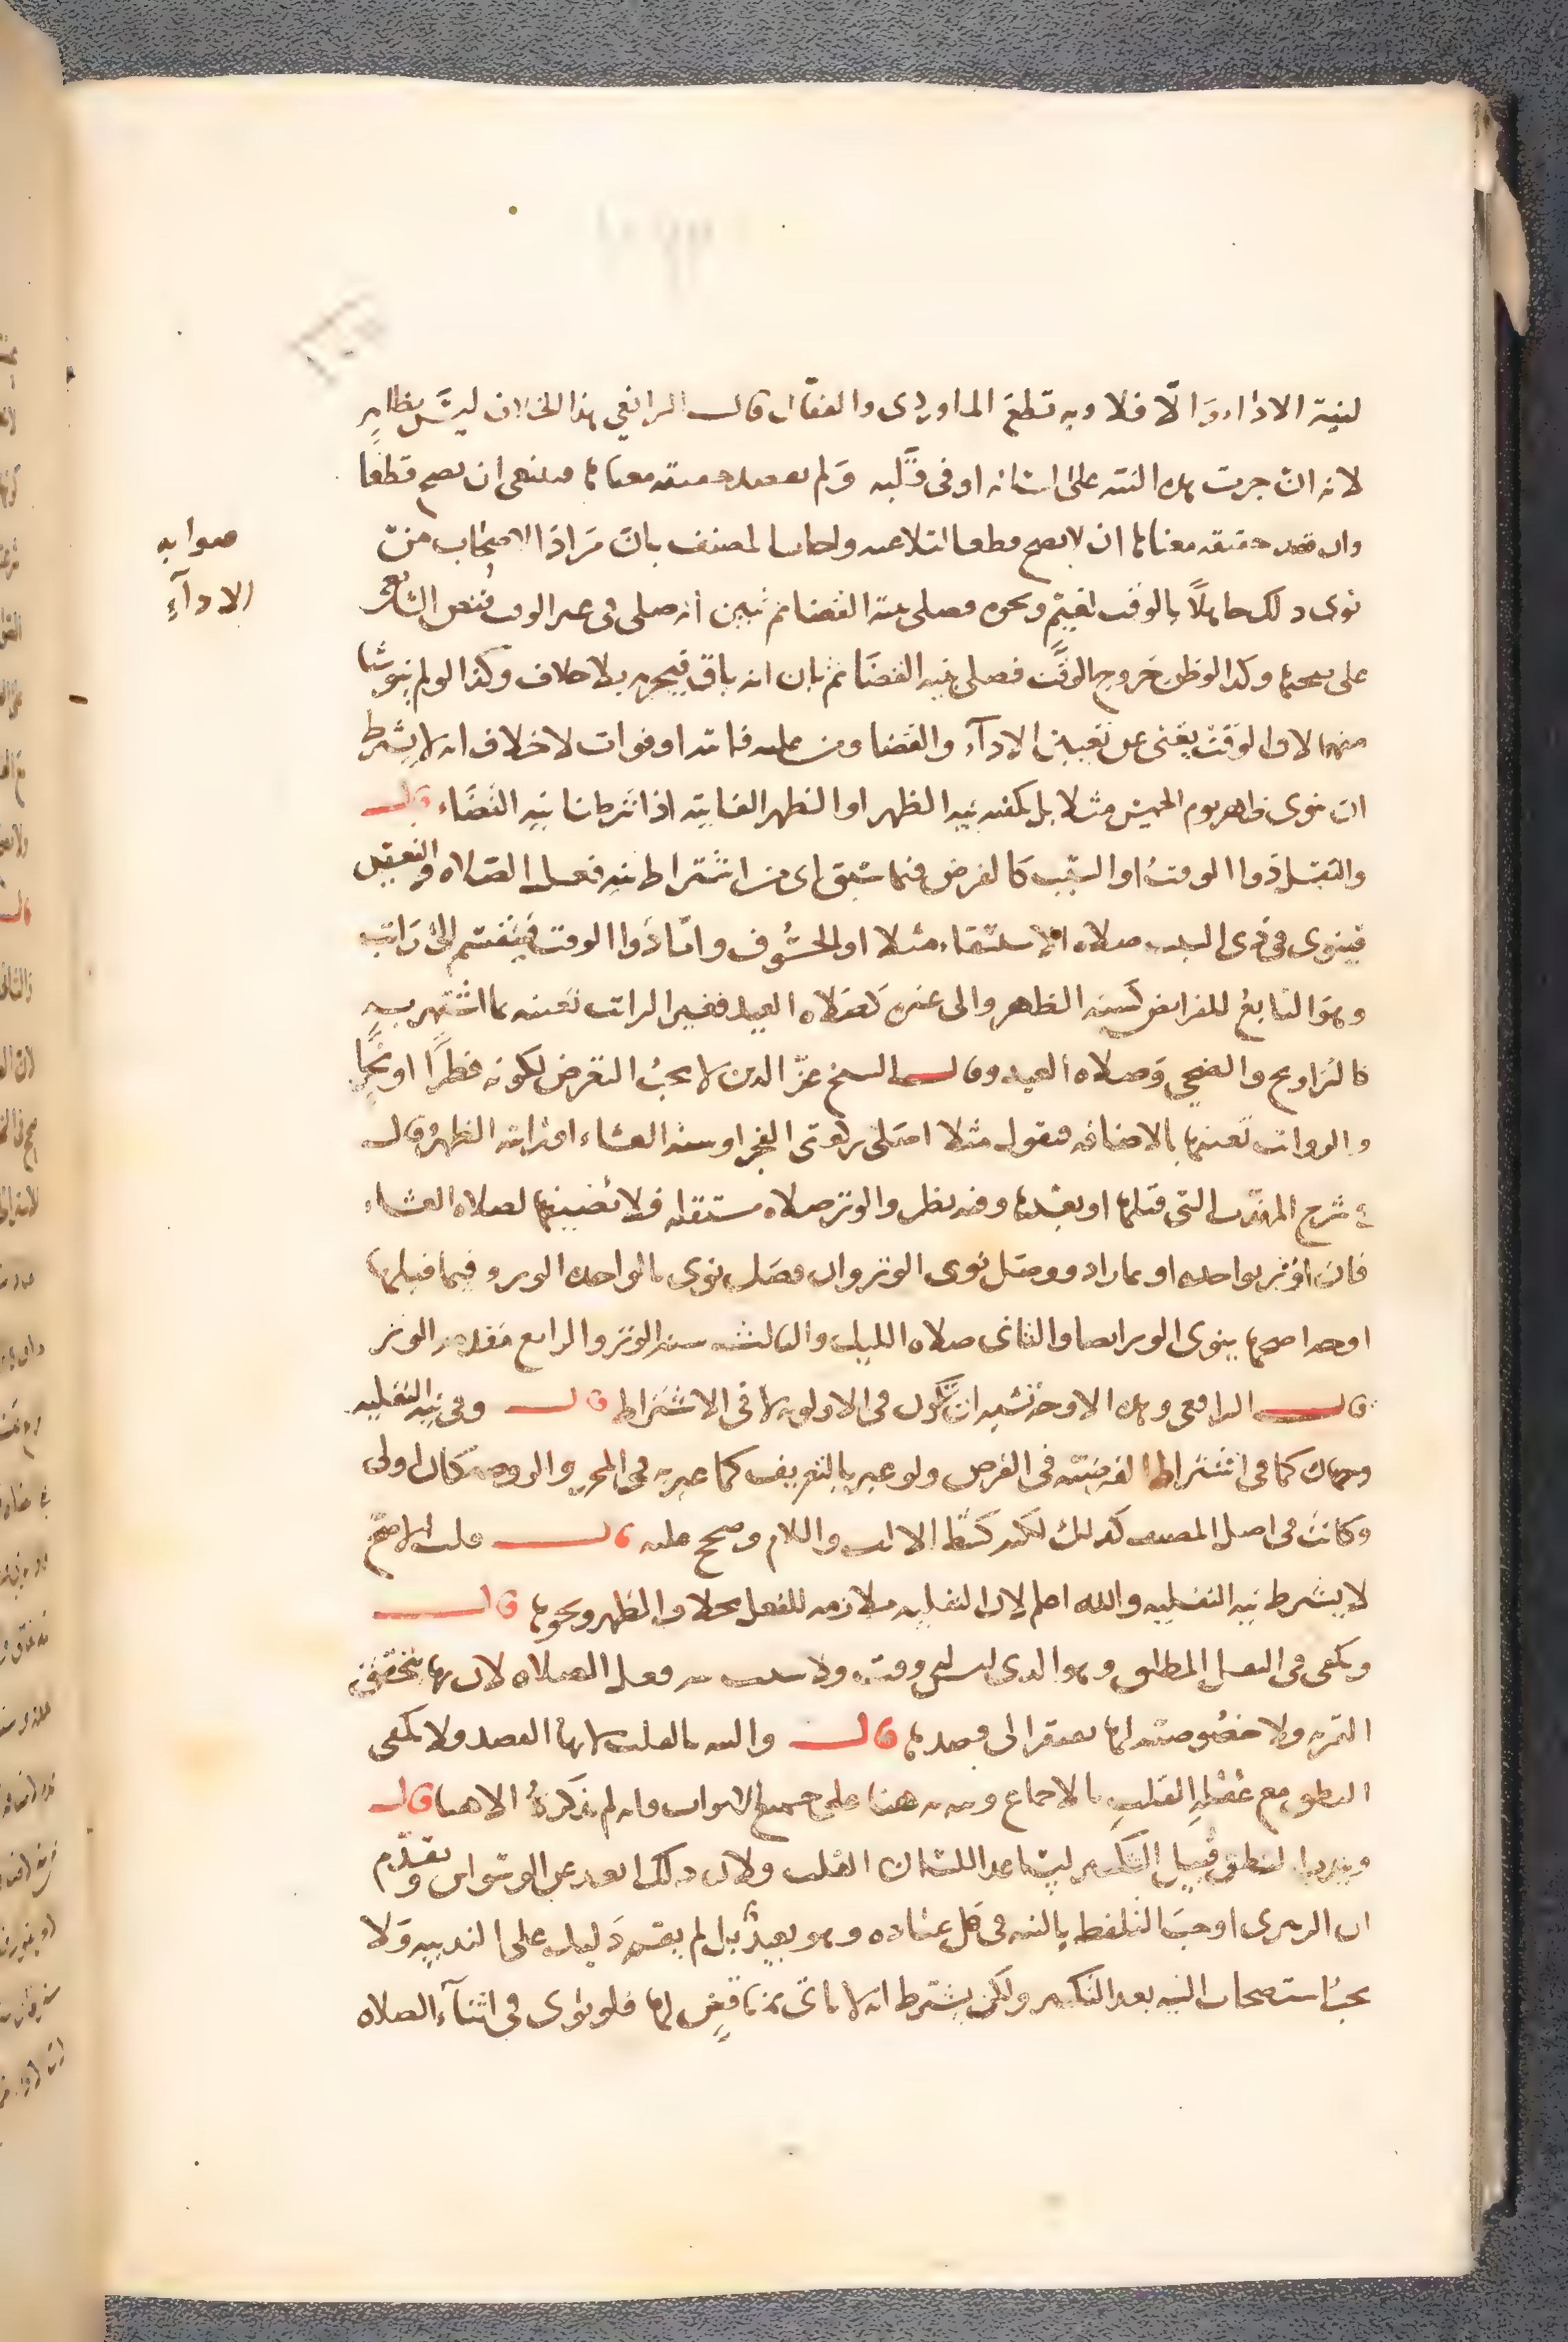 لنية الاداء والا فلا وبه قطع الماوردى والقفال قال الرافعي هذا الخلاف ليس بظاهر
لانه ان جرت هذه النية على لسانه او فى قلبه ولم يقصد حقيقه معناها فينبغى ان تصح قطعا
وان قصد حقيقه معناها ان لا يصح قطعا لتلاعبه واجاب المصنف بان مراد الاصحاب من
نوى ذلك جاهلا بالوقت لغيم ونحوه فصلى بنية القضا ثم تبين انه صلى فى غير الوقت فنص الشافعى
صوابه
الاداء
على صحتها وكذا لو ظن خروج الوقت فصلى بنيه القضا ثم بان انه باق فيجزيه بلا خلاف وكذا لو لم ينو شيا
منهما لان الوقت يغنى عن تعيين الادآء والقضا ومن عليه فائتة او فوائت لا خلاف انه لا يشترط
ان ينوى ظهر يوم الخميس مثلا بل يكفيه نيه الظهر او الظهر الفايته اذا شرطنا نيه القضاء قال
والنفل ذوا الوقت او السبب كالفرض فيما سبق اى من اشتراط نيه فعل الصلاه والتعيين
فينوى فى ذى السبب صلاه الاستسقاء مثلا او الخسوف واما ذوا الوقت فينقسم الى راتب
وهو التابع للفرايض كسنه الظهر والى غيره كصلاه العيد فغير الراتب تعينه بما اشتهر به
كالتراويح والضحى وصلاه العيد وقال الشيخ عز الدين لا يجب التعرض لكونه فطرا او نحرا
والرواتب تعينها بالاضافه فيقول مثلا اصلى ركعتى الفجر او سنه العشاء او راتبه الظهر وقال
فى شرح المهذب التى قبلها او بعدها وفيه نظر والوتر صلاه مستقله فلا تضيفها لصلاه العشاء
فان اوتر بواحده او بما زاد ووصل نوى الوتر وان فصل نوى بالواحده الوتر وفيما قبلها
اوجه اصحها ينوى الوتر ايضا والثانى صلاه الليل والثالث سنه الوتر والرابع مقدمه الوتر
قال الرافعى وهذه الاوجه تشبه ان تكون فى الاولويه لا فى الاشتراط قال وفى نيه النفليه
وجهان كما فى اشتراط الفرضيه فى الفرض ولو عبر بالتعريف كما عبر به فى المحرر والروضه كان اولى
وكانت فى اصل المصنف كذلك لكنه كشط الالف واللام وصحح عليه قال قلت الاصح
لا يشترط نيه النفليه والله اعلم لان النفليه ملازمه للنفل بخلاف الظهر ونحوها قال
ويكفى فى النفل المطلق وهو الذى ليس له وقت ولا سبب نيه فعل الصلاه لان بها يتحقق
التميز ولا خصوصيه لها يفتقر الى قصدها قال والنيه بالقلب لانها القصد ولا يكفى
النطق مع غفله القلب بالاجماع ونبه به هنا على جميع الابواب فانه لم يذكره الا هنا قال
ويندب النطق قبيل التكبير ليساعد اللسان القلب ولان ذلك ابعد عن الوسواس وتقدم
ان الزبيرى اوجب التلفظ بالنيه فى كل عباده وهو بعيد بل لم يقم دليل على الندبيه ولا
يجب استصحاب النيه بعد التكبير ولكن يشترط ان لا ياتى بمناقض لها فلو نوى فى اثنآء الصلاه